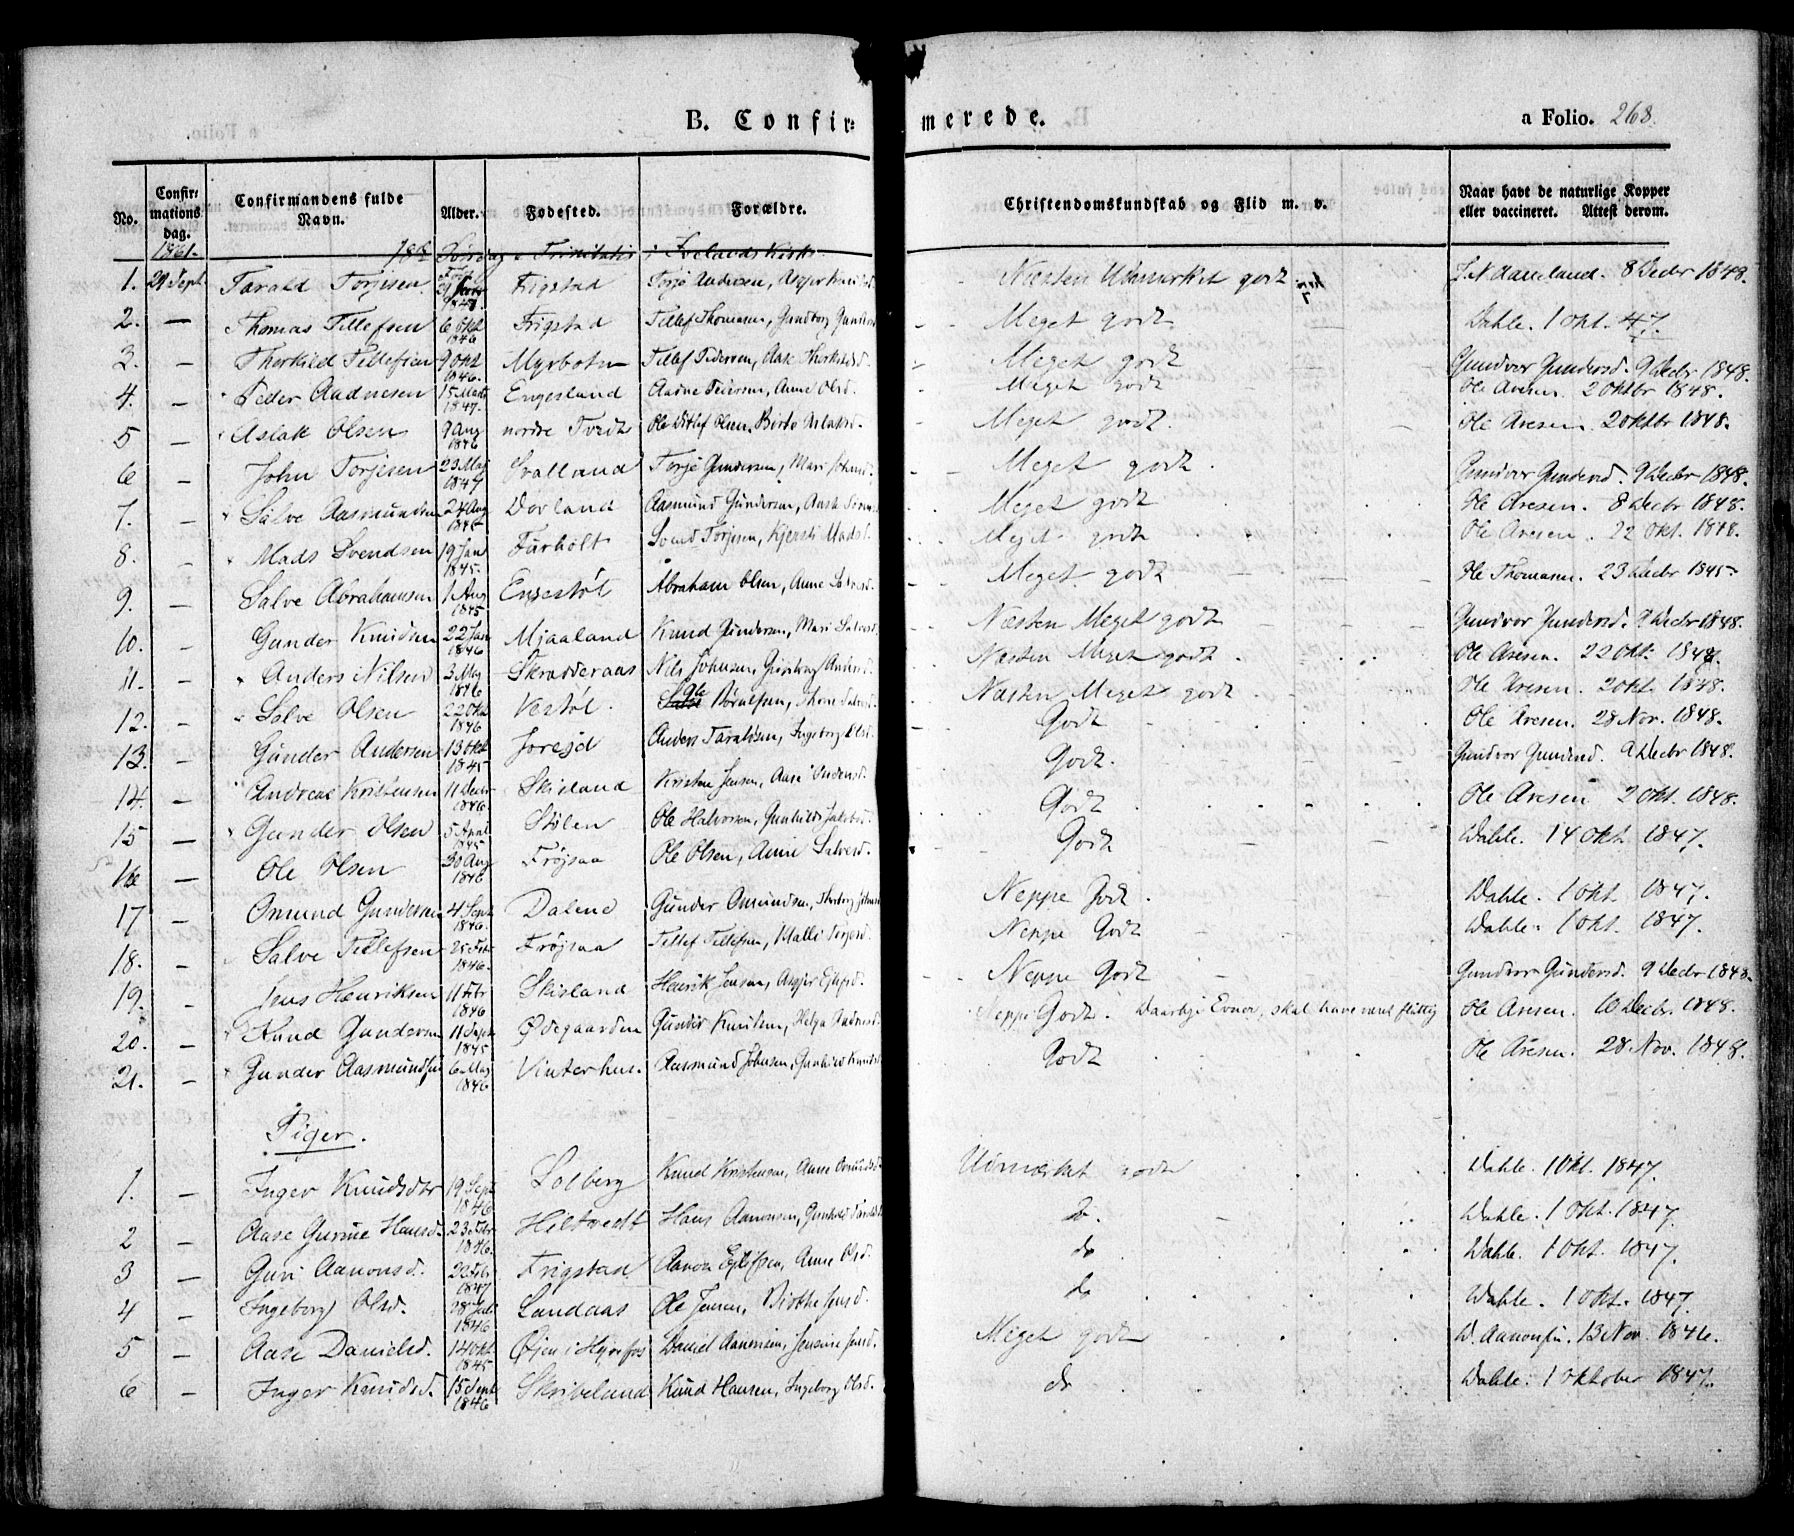 B. Confir= merede. a Folio. 268.
No. Confirmations dag. Confirmandens fulde Navn. Alder. Fødested. Forældre. Christendomskundskab og Flid m. v. Naar havt de naturlige Kopper eller vaccineret. Attest derom.
1861. 18de Søndag e Trinitatis i Ivelands Kirke
1. 29 Sept. Tarald Torjesen. 1847. Frigstad Torje Andersen, Næsten Udmærket godt 8 Decbr 1848.
2. — Thomas Tellefsen 6 Okt 1846 Frigstad Tellef Thomasen, Gunborg Meget godt Dahle. 1 Okt. 47.
3. — Thorkild Tellefsen 9 Okt 1846. Myrbotn Tellef Pedersen, Aase Meget godt Gundvor Gundersd. 9 Decbr 1848.
4. — Peder Aadnesen 15 Marts 1847. Engesland Aadne Pedersen, Anne Olsd. Meget Godt Ole Aresen. 2 Oktbr 1848.
5 — Aslak Olsen 9 Aug 1846 nordre Tvedt Ole Ditlef Olsen, Meget godt. Ole Aresen. 2 Oktbr 1848.
6 — John Torjesen 23 Maj 1847 Svalland Torje Gundersen, Mari Johnsd. Meget godt. Gundvor Gundersd. 9 Decbr 1848.
7. — Salve Aasmundsen 24 Aug Dovland Aasmund Gundersen, Meget godt Ole Aresen. 8 Decbr 1848.
8. — Mads Svendsen 19 Jan 1845. Furholt Svend Torjesen, Kjersti Madsd. Meget godt Ole Aresen. 22 Okt. 1848.
9. — Salve Abrahamsen 1 Aug 1845 Engestøl Abraham Olsen, Anne Salvesd. Meget godt Ole Thomasen. 23 Decbr 1845.
10. — Gunder Knudsen 22 Jan 1846 Mjaaland Knud Gundersen, Mari Salvesd. Næsten Meget godt Gundvor Gundersd. 9 Decbr 1848.
11. — Anders Nilsen 3 Maj 1846 Skradderaas Nils Johnsen, Næsten Meget godt. Ole Aresen. 22 Okt. 1848.
12. — Salve Olsen 22 Okt 1846 Vestøl. Ole Næsten Meget godt. Ole Aresen. 2 Okt. 1848.
13. — Gunder Andersen 13 Okt 1845 Anders Taraldsen, Ingeborg Olsd. Godt Ole Aresen. 28 Nov. 1848.
14. — Andreas Kristensen 11 Decbr 1846. Skisland Kristen Jensen, Aase Godt. Gundvor Gundersd. 9 Decbr 1848.
15 — Gunder Olsen 5 April 1845 Stølen Ole Halvorsen, Gunhild Jakobsd. Godt Ole Aresen 2 Okt. 1848.
16 — Ole Olsen 30 Aug 1846 Frøjsaa Ole Olsen, Anne Salvesd. Godt Dahle. 14 Okt. 1847.
17 — Omund Gundersen 4 Sept 1846. Dalene Gunder Omundsen, Neppe Godt. Dahle. 1 Okt. 1847.
18. — Salve Tellefsen 25 Febr 1846. Frøjsaa Tellef Tellefsen, Malli Torjesd. Neppe Godt Dahle. 1 Okt. 1847.
19. — Jens Henriksen 11 Febr 1846 Skisland Henrik Jensen, Neppe Godt Gundvor Gundersd. 9 Decbr 1848.
20. — Knud Gundersen 11 Sept 1845 Ødegaarden Gunder Knudsen, Helga Aadnesd. Neppe Godt. Daarlige Evner, skal have været flittig Ole Aresen. 10 Decbr. 1848.
21. — Gunder Aasmundsen 6 Maj 1846 Vinterhus. Aasmund Johnsen, Gunhild Godt Ole Aresen. 28 Nov. 1848.
Piger.
1. — Inger Knudsdtr 19 Sept 1846 Solberg Knud Kristensen, Anne Udmærket godt Dahle. 1 Okt. 1847.
2 — Aase Gurine Hansd. 23 Febr 1846. Hiltvedt Hans Aanonsen, Gunhild do. Dahle. 1 Okt. 1847.
3 — Guri Aanonsd. 22 Febr 1847 Frigstad Aanon Ejlefsen, Anne Olsd. do Dahle. 1 Okt. 1847.
4 — Ingeborg Olsd. 28 1846 Landaas Ole Jensen, Birthe Jensd. do Dahle. 1 Okt. 1847.
5 — Aase Danielsd. 14 Okt. 1845 Øjen i Daniel Aanonsen, Jensine Jensd. Meget godt D. Aanonsen. 13 Nov. 1846.
6 — Inger Knudsd. 15 Sept 1846 Skribeland Knud Hansen, Ingeborg Olsd. do Dahle. 1 Oktober 1847.